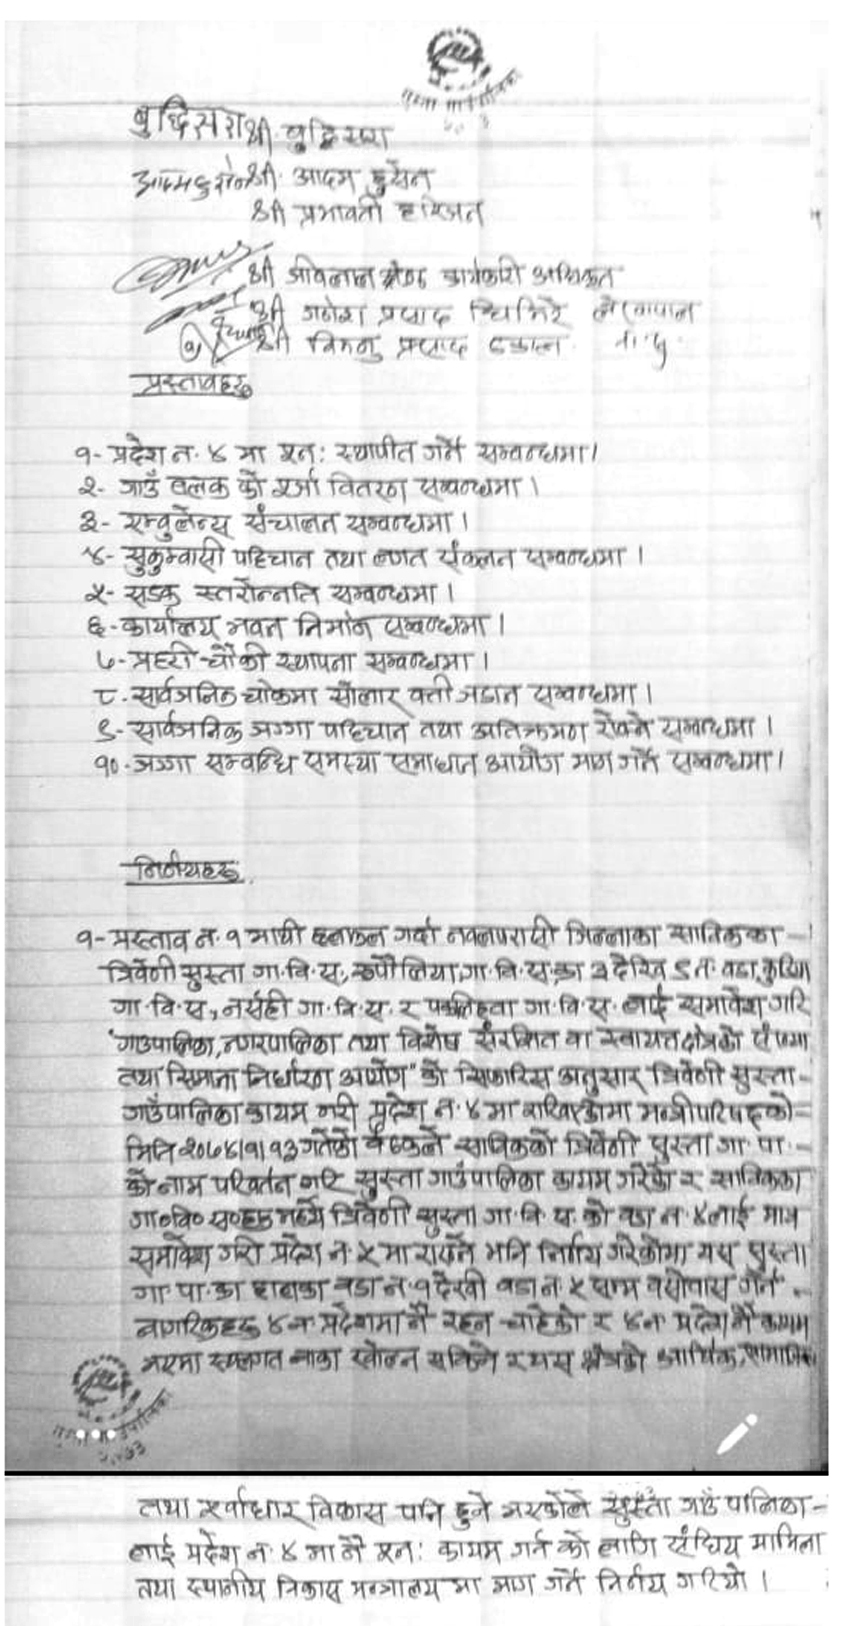 बुद्धिसरा श्री बुद्धिसरा
श्री आदम हुसेन
श्री प्रभावती हरिजन
श्री कार्यकारी अधिकृत
श्री गणेश प्रसाद घिमिरे लेखापाल
श्री विष्णु प्रसाद ढकाल ना.सु
प्रस्तावहरु
१- प्रदेश न. ४ मा पुन: स्थापीत गर्ने सम्बन्धमा।
२- गाउँ ब्लक को पूर्जा वितरण सम्बन्धमा।
३- एम्बुलेन्स संचालन सम्बन्धमा।
४- सुकुम्वासी पहिचान तथा लगत संकलन सम्बन्धमा।
५- सडक स्तरोन्नति सम्बन्धमा।
६- कार्यालय भवन निर्माण सम्बन्धमा।
७- प्रहरी चौकी स्थापना सम्बन्धमा।
८. सार्वजनिक चोकमा सोलार वत्ती जडान सम्बन्धमा।
९- सार्वजनिक जग्गा पहिचान तथा अतिक्रमण रोक्ने सम्बन्धमा।
१०. जग्गा सम्बन्धि समस्या समाधान आयोग माग गर्ने सम्बन्धमा।
निर्णयहरु
१- प्रस्ताव न. १ माथी छलफल गर्दा नवलपरासी जिल्लाका साविकका -
त्रिवेणी सुस्ता गा.वि.स., रुपौलिया गा.वि.स.का ३ देखि ९ न. वडा, कुडिया
गा.वि.स., नर्सही गा.वि.स. र पक्लिहवा गा.वि.स. लाई समावेश गरि
"गाउपालिका, नगरपालिका तथा विशेष संरक्षित वा स्वायत्त क्षेत्रको संख्या
तथा सिमाना निर्धारण आयोग" को सिफारिस अनुसार त्रिवेणी सुस्ता -
गाउँपालिका कायम गरी प्रदेश न. ४ मा राखिएकोमा मन्त्रीपरिषदको -
मिति २०७४।१।१३ गतेको बैठकले साविकको त्रिवेणी सुस्ता गा.पा. -
को नाम परिवर्तन गरि सुस्ता गाउँपालिका कायम गरेको र साविकका
गा०वि० स०हरु मध्ये त्रिवेणी सुस्ता गा.वि.स. को वडा न. ४ लाई मात्र
समावेश गरी प्रदेश न. ५ मा राख्ने भनि निर्णय गरेकोमा यस सुस्ता
गा.पा. का हालका वडा न. १ देखी वडा न. ५ सम्म वसोवास गर्ने -
नागरिकहरु ४ न. प्रदेशमा नै रहन चाहेको र ४ न. प्रदेश नै कायम
भएमा स्थलगत नाका खोल्न सकिने र यस क्षेत्रको आर्थिक, सामाजिक
तथा पूर्वाधार विकास पनि हुने भएकोले सुस्ता गाउँ पालिका -
लाई प्रदेश न. ४ मा नै पुन: कायम गर्न को लागि संघिय मामिला
तथा स्थानीय विकास मन्त्रालय मा माग गर्ने निर्णय गरियो।